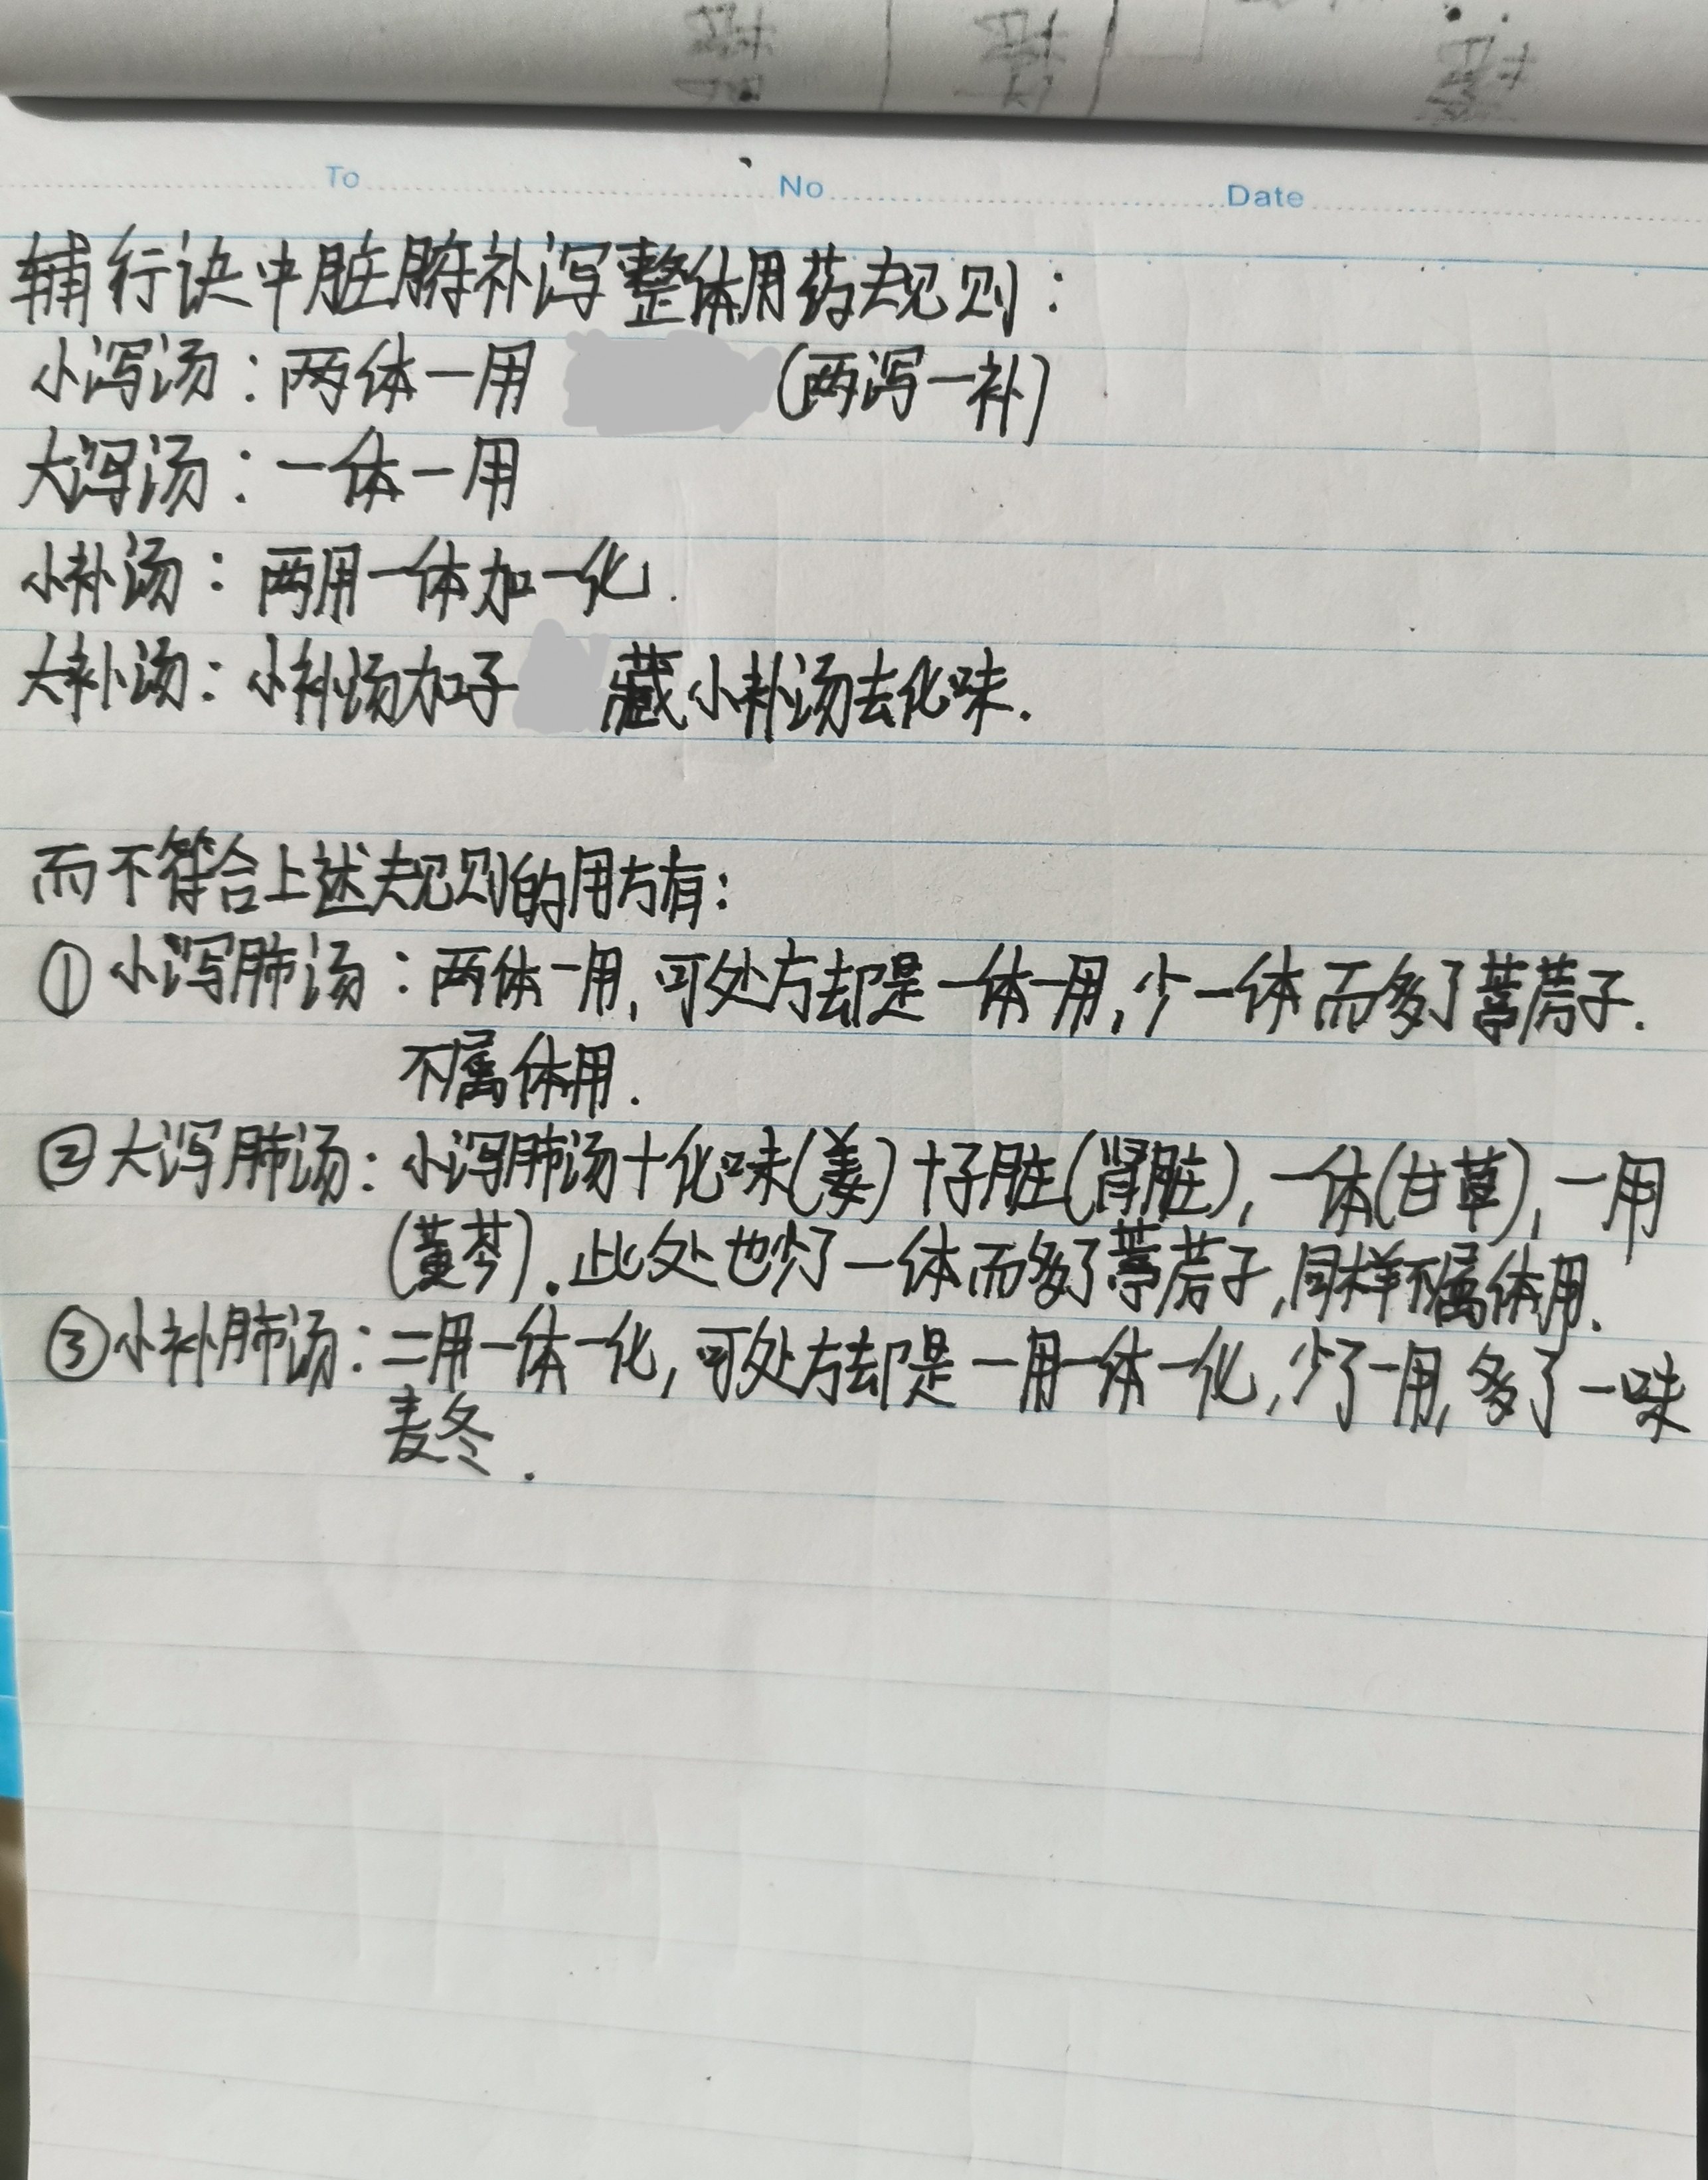 To No Date
辅行诀中脏腑补泻整体用药规则：
小泻汤：两体一用 (两泻一补)
大泻汤：一体一用
小补汤：两用一体加一化.
大补汤：小补汤加子 藏小补汤去化味.
而不符合上述规则的用方有：
① 小泻肺汤：两体一用,可处方却是一体一用,少一体而多了葶苈子.
不属体用.
② 大泻肺汤：小泻肺汤+化味(姜)+子脏(肾脏),一体(甘草),一用
(黄芩).此处也少了一体而多了葶苈子,同样不属体用.
③ 小补肺汤：二用一体一化,可处方却是一用一体一化,少了一用,多了一味
麦冬.